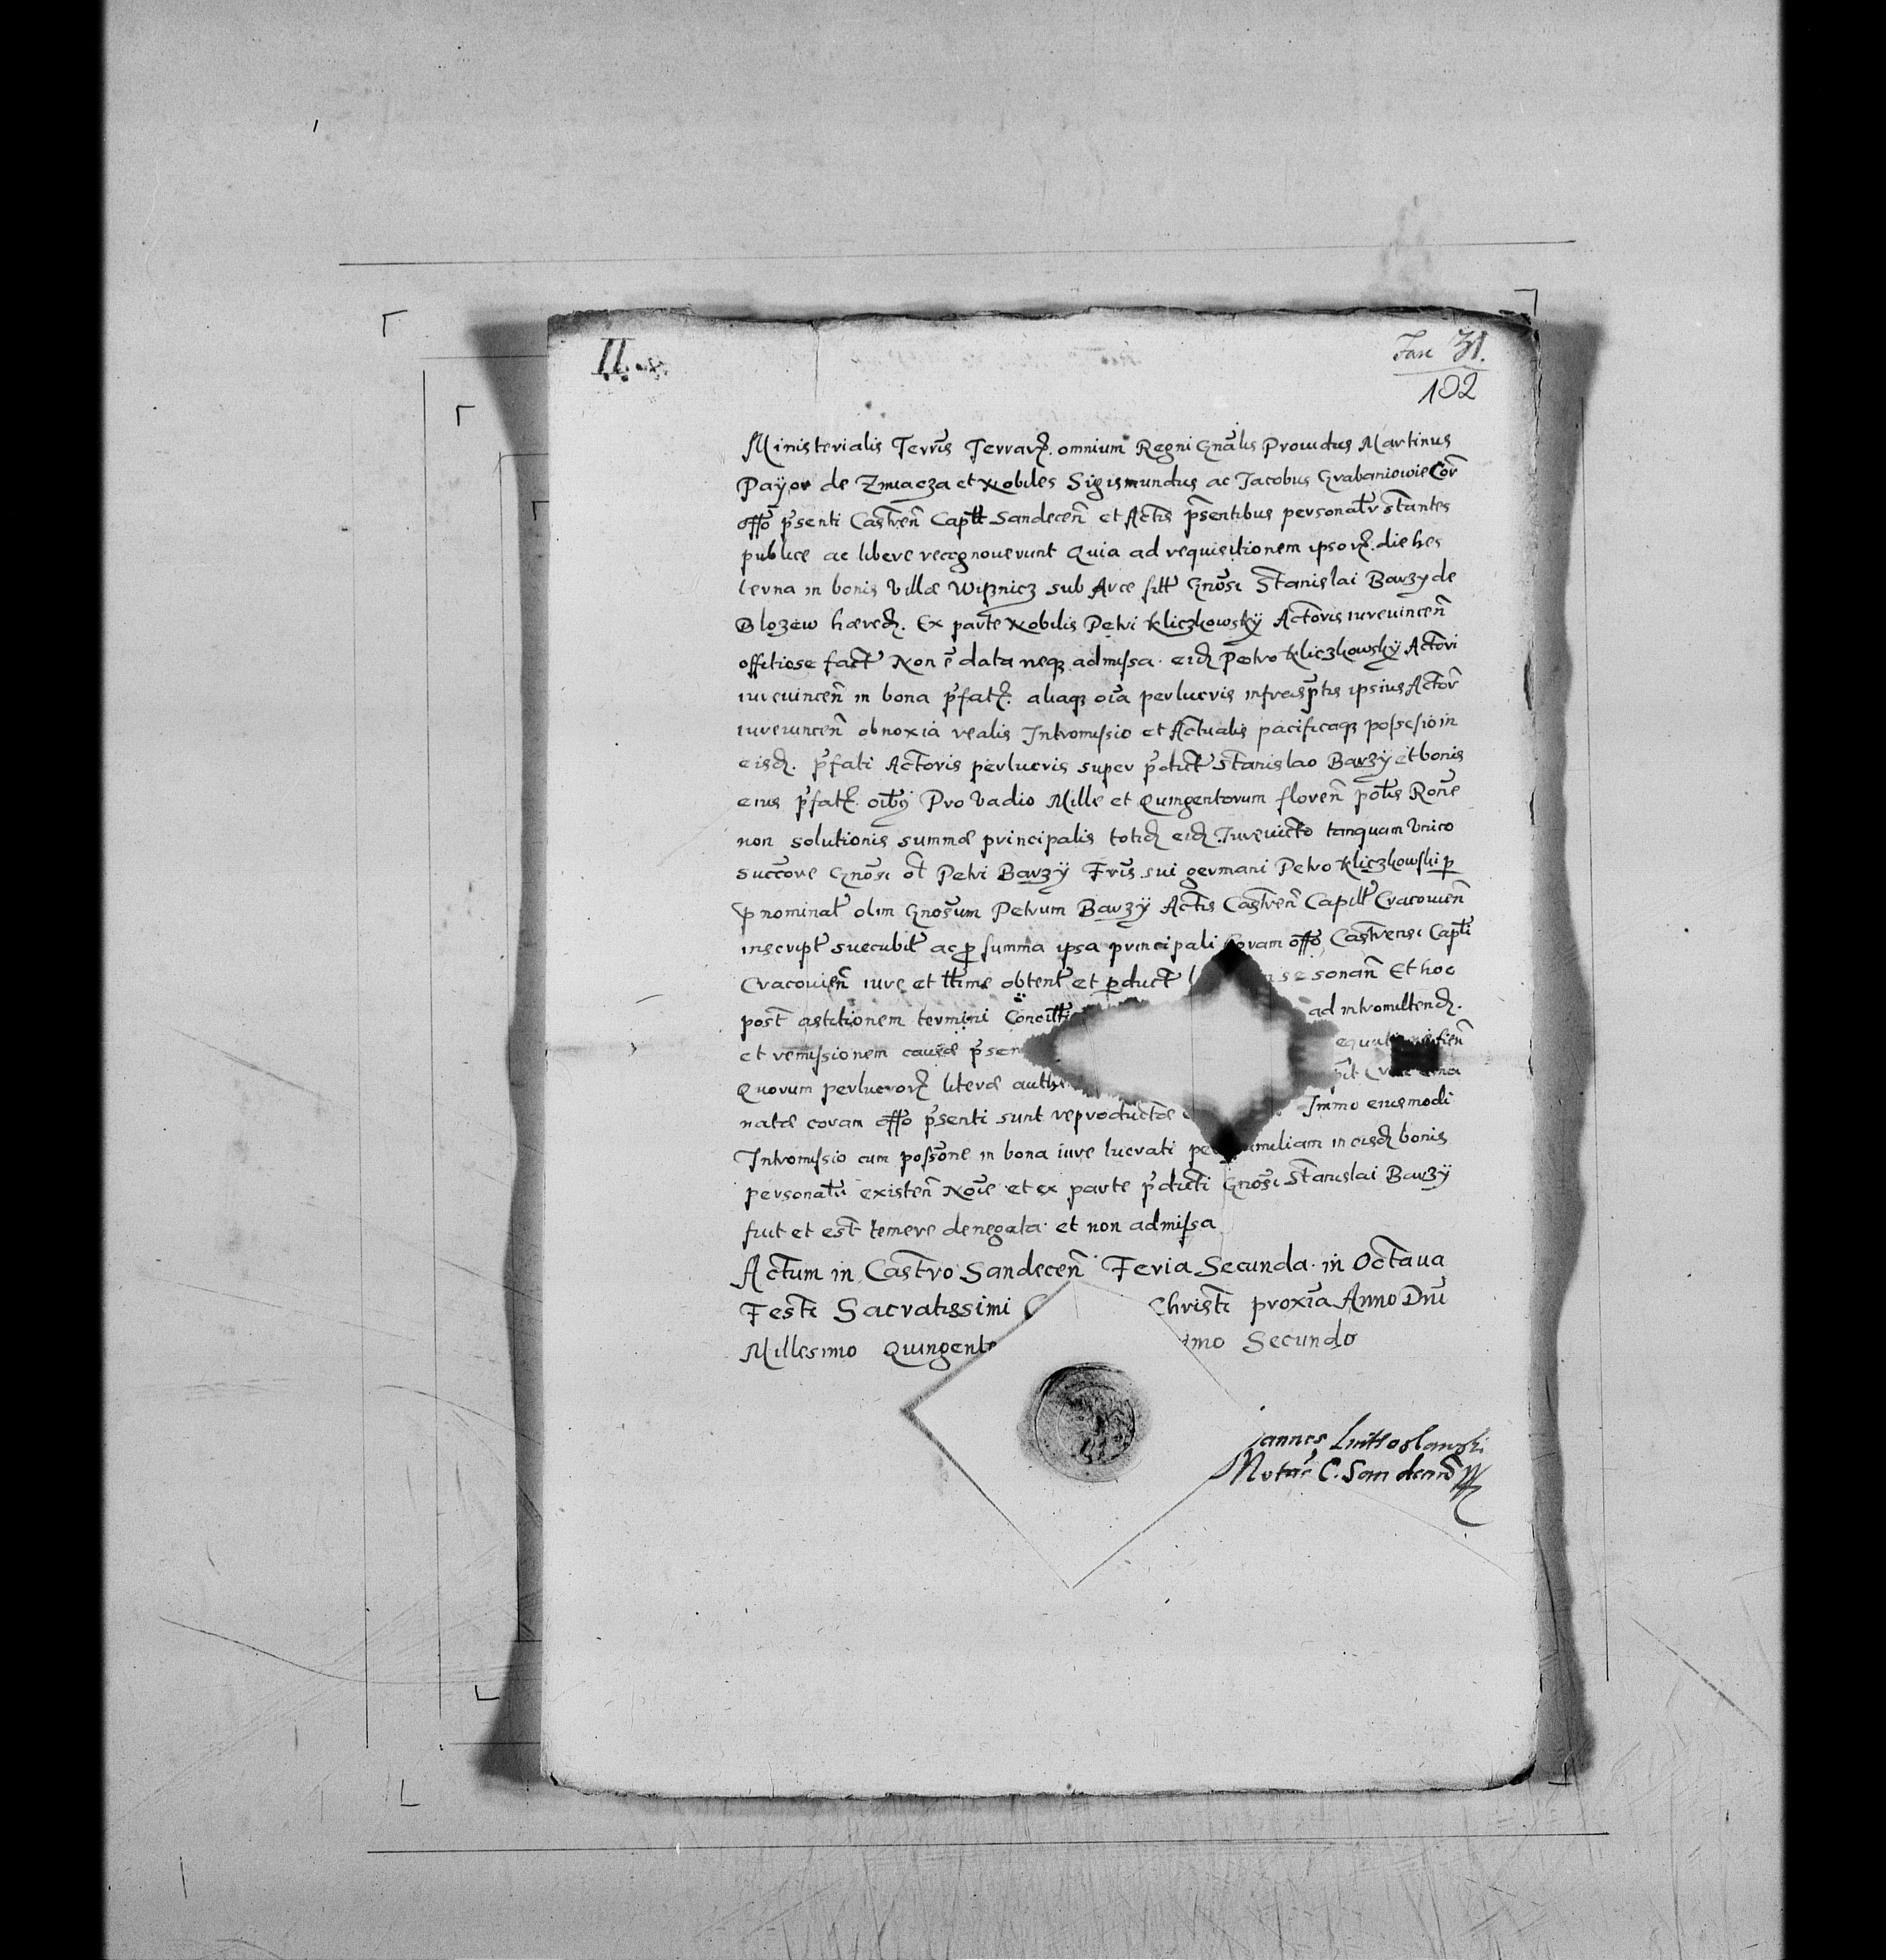 II.
Fasc 31.
102
Ministerialis Terrīs Terrarꝝ omnium Regni Gnãlis Prouidus Martinus
Paÿor de Zmiacza et Nobiles Sigismundus ac Jacobus Grabaniowie Cor̃
offõ p̃senti Castren̄ Capłł Sandecen̄ et Actis p̃sentibus personałr stantes
publice ac libere recognouerunt Quia ad requisitionem ipsorꝝ die hes
terna in bonis Villæ Wiſznicz sub Arce sitł Gnõsi Stanislai Barzy de
Blozew hæred. Ex parte Nobilis Petri Kliczkowskÿ Actoris iureuincen̄
offitiose fact Non ē data neqꝫ admissa eid Petro Kliczkowskÿ Actori
iureuincen̄ in bona p̃fatꝝ aliaqꝫ oĩa perlucris infrascp̃tis ipsius Actor̄
iureuincen̄ obnoxia realis Intromissio et Actualis pacificaqꝫ possessio in
eisd. p̃fati Actoris perlucris super p̃dict Stanislao Barzÿ et bonis
eius p̃fatꝝ oĩbꝫ Pro Vadio Mille et Quingentorum floren̄ połłis Rõne
non solutionis summæ principalis totid eid Iureuicto tanquam Vnico
succ̄ore Gnõsi ol̃ Petri Barzÿ Fr̃is sui germani Petro Kliczkowski ꝑ
p̱nominał olim Gnosum Petrum Barzÿ Actis Castren̄ Capitł Cracouien̄
inscripł succubił ac ꝓ summa ipsa principali Coram offõ Castrensi Capłi
Cracouien̄ iure et łłime obtenł et ꝑduct se sonan̄ Et hoc
post astitionem termini Conciłłi ad intromittend.
et remissionem causæ p̃sen
Quorum perlucrorꝝ literæ authe
natæ coram offõ p̃senti sunt reproductæ Immo eiusmodi
Intromissio cum possõne in bona iure lucrati per familiam in eisd bonis
personałr existen̄ Noĩe et ex parte p̃dicti Gnõsi Stanislai Barzÿ
fuit et est temere denegata et non admissa
Actum in Castro Sandecen̄ Feria Secunda in Octaua
Festi Sacratissimi Christi proxĩa Anno Dnĩ
Millesimo Quingente imo Secundo
Joannes Luttoslawski
Notar C. Sandecen̄